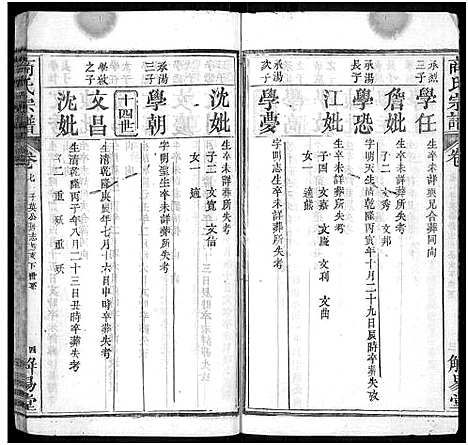 商氏宗譜
卷
解易堂
承烈三子
學任
生卒未詳與兄合葬同向
詹妣
生卒未詳葬所失考
子二 文秀 文邦
承湯長子
學恐
字明天生清乾隆丙寅年十月二十九日辰時卒葬失考
江妣
生卒未詳葬所失考
子四 文嘉 文慶 文利 文曲
女一 適
承湯次子
學憂
字明志生卒未詳葬所失考
沈妣
生卒未詳葬所失考
子二 文寬 文信
女一 適
承湯三子
學朝
字明聖生卒未詳葬所失考
十四世
學敬之子
文昌
生清乾隆庚辰年七月十六日申時卒葬失考
沈妣
生清乾隆丙子年八月二十三日丑時卒葬失考
子二 重 重
商氏宗譜
卷九
四
解易堂